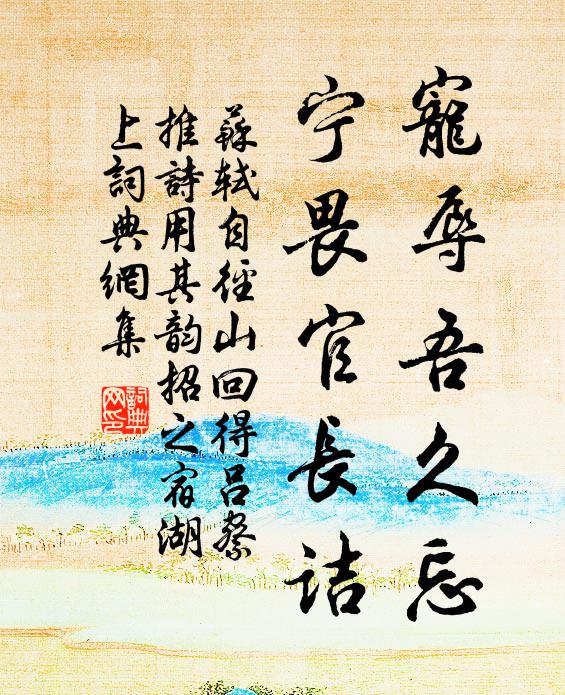 寵辱吾久忘
宁畏官長詰
蘇軾自徑山回得呂察
推詩用其韵招之宿湖
上詞典網集
詞典网印